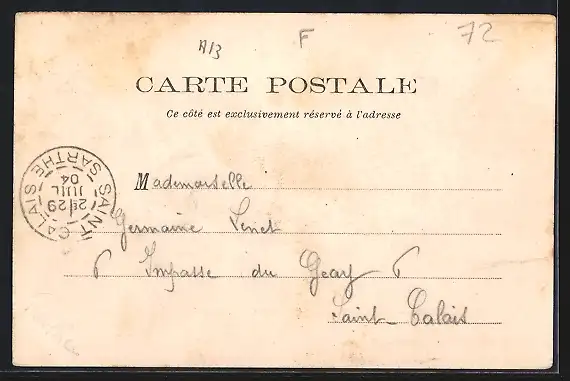 A/3 F 72
CARTE POSTALE
Ce côté est exclusivement réservé à l'adresse
Mademoiselle
Germaine
6 Impasse du Geay 6
Saint-Calais
SAINT CALAIS
SARTHE
2E 29
JUIL
04